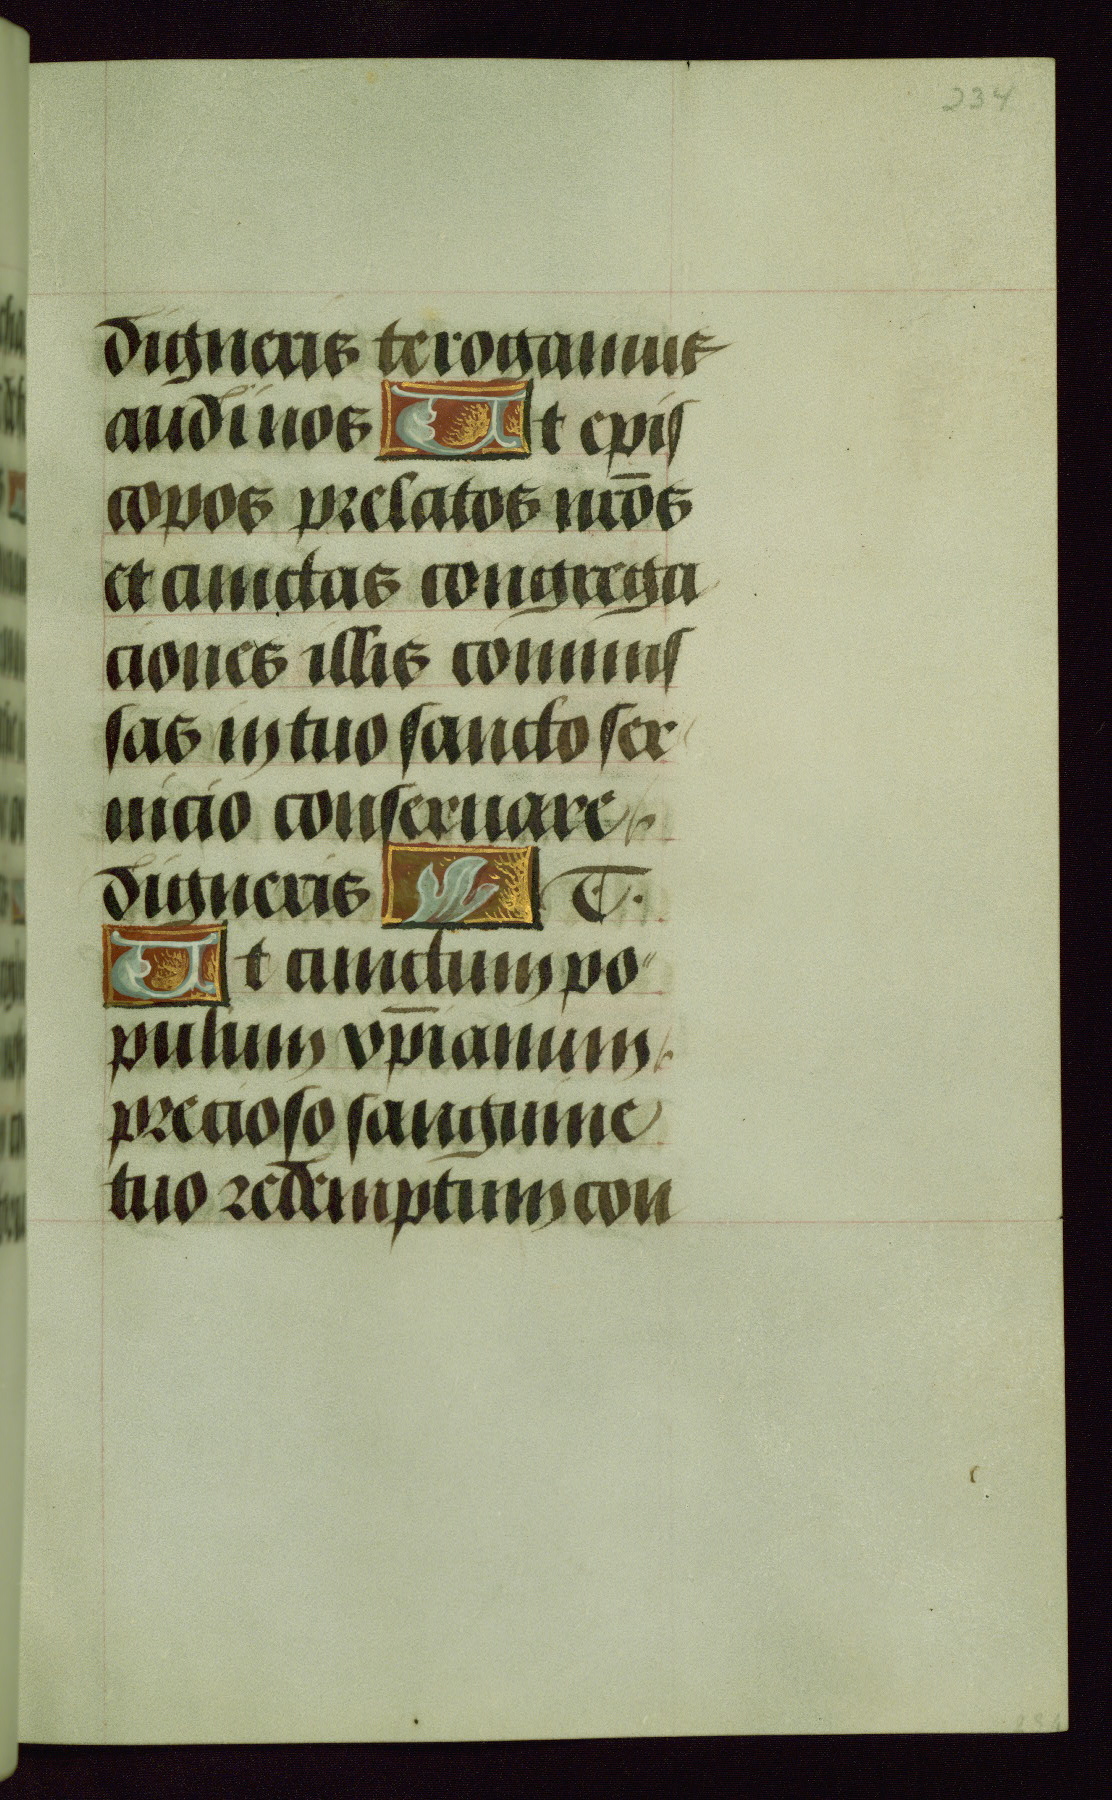 234
digneris te rogamus
audi nos Ut epis
copos prelatos nr̄os
et cunctas congrega
ciones illis commis
sas in tuo sancto ser
uicio conseruare
digneris T.
Ut cunctum po
pulum xp̄ianum
precioso sanguine
tuo redemptum con